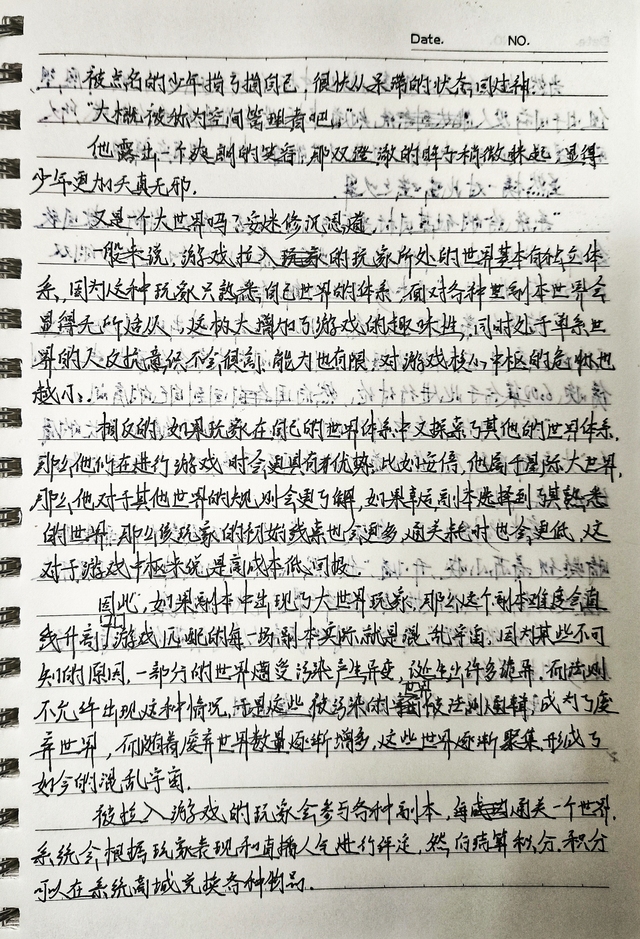 Date. NO.
被点名的少年指了指自己，很快从呆滞的状态回过神
“大概被称为空间管理者吧。”
他露出一个爽朗的笑容，那双澄澈的眸子稍微眯起，显得
少年更加天真无邪.
又是一个大世界吗？安 沉思道。
一般来说，游戏拉入的玩家所处的世界基本自独立体
系，因为这种玩家只熟悉自己世界的体系，面对各种 副本世界会
显得无所适从，这极大增加了游戏的趣味性，同时处于单系世
界的人反抗意识不会很高，能力也有限，对游戏核心中枢的危机也
越小。
相反的，如果玩家在自己的世界体系中又探索了其他的世界体系，
那么他们在进行游戏时会更具有优势，比如安倍，他属于星际大世界，
那么他对于其他世界的规则会更了解，如果幸运副本选择到了其熟悉
的世界，那么该玩家的初始线点也会更多，通关耗时也会更低，这
对于游戏中枢来说是高成本低回报.
因此，如果副本中出现了大世界玩家，那么这个副本难度会直
线升高，而游戏匹配的每一场副本实际就是混乱宇宙，因为某些不可
知的原因，一部分的世界遭受污染产生异变，诞生出许多诡异，而法则
不允许出现这种情况，于是这些被污染的世界被法则通辑，成为了废
弃世界，而随着废弃世界数量逐渐增多，这些世界逐渐聚集，形成了
如今的混乱宇宙.
被拉入游戏的玩家会参与各种副本，通关一个世界，
系统会根据玩家表现和直播人气进行评定，然后结算积分，积分
可以在系统商城兑换各种物品.